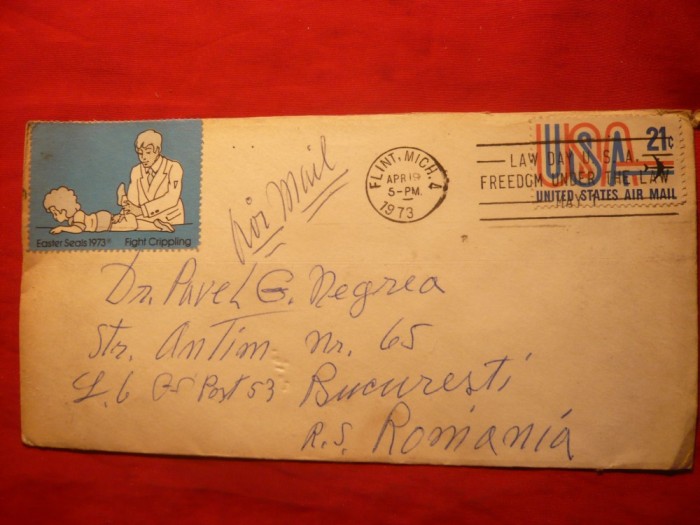 Easter Seals 1973 Fight Crippling
Air Mail
FLINT, MICH. 4
APR 19
5-PM
1973
LAW DAY U.S.A.
FREEDOM UNDER THE LAW
MAY
USA
21¢
UNITED STATES AIR MAIL
Dr. Pavel G. Negrea
Str. Antim nr. 65
Post 53 Bucuresti
R.S. Romania